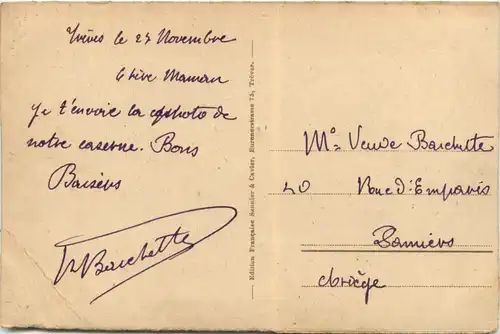 Trèves le 27 Novembre
Chère Maman
Je t'envoie la photo de
notre caserne. Bons
Baisers
Barchette
Edition Française Saunier & Cavier, Euremerstrasse 73, Trèves.
Mᵉ Veuve Barchette
40 Rue d'Emparis
Pamiers
Ariège